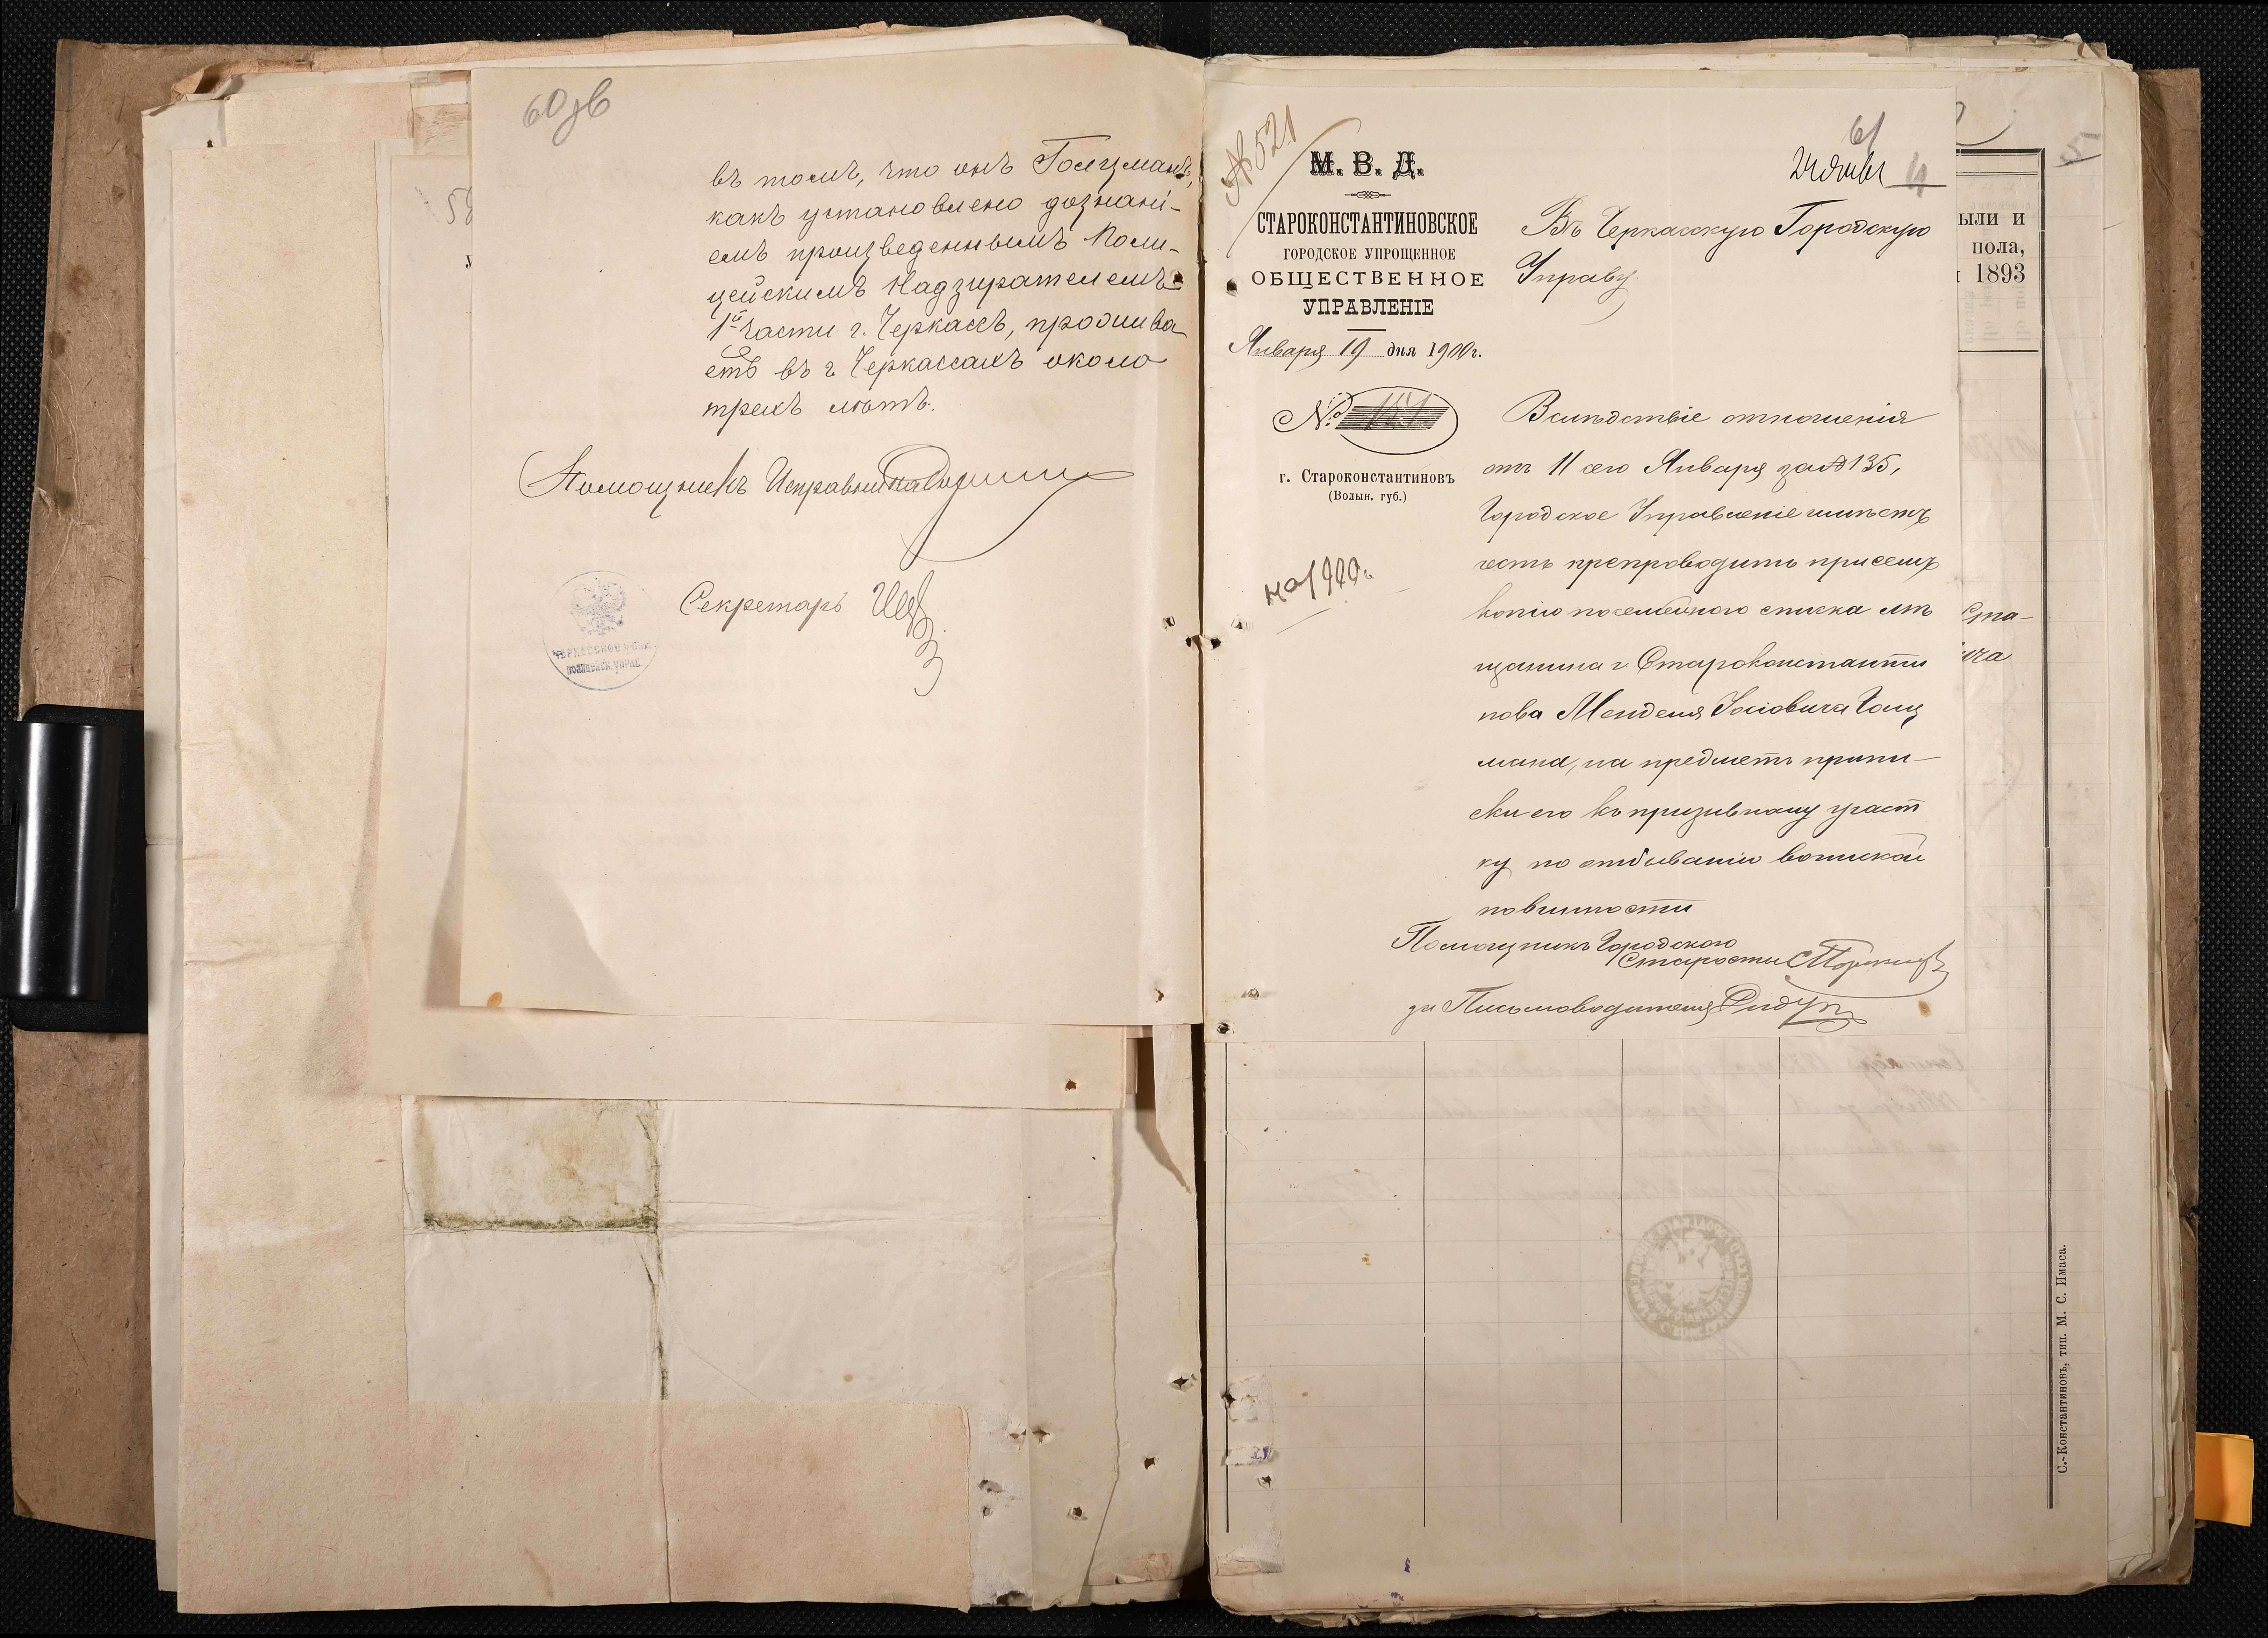 60 об
въ томъ, что онъ Голцманъ,
какъ установлено дознані-
емъ произведеннымъ Поли-
цейскимъ Надзирателемъ
1й части г. Черкассъ, прожива
етъ въ г Черкассахъ около
трехъ лѣтъ.
Помощникъ Исправника
Секретарь
№ 521
М. В. Д.
СТАРОКОНСТАНТИНОВСКОЕ
ГОРОДСКОЕ УПРОЩЕННОЕ
ОБЩЕСТВЕННОЕ
УПРАВЛЕНІЕ
Января 19 дня 1900 г.
№
г. Староконстантиновъ
(Волын. губ.)
на 1900 г.
61
24 Янв
4
Въ Черкасскую Городскую
Управу
Вслѣдствіе отношенія
отъ 11 сего Января за № 135,
Городское Управленіе имѣетъ
честь препроводить при семъ
копію посемейного списка мѣ
щанина г Староконстанти
нова Менделя Іосіовича Голц
мана, на предметъ припи-
ски его къ призывному участ
ку по отбыванію воинской
повинности
Помощникъ Городского
Старосты
за Письмоводителя
5
ыли и
пола,
1893
Ста-
ича
С.-Константиновъ, тип. М. С. Имаса.